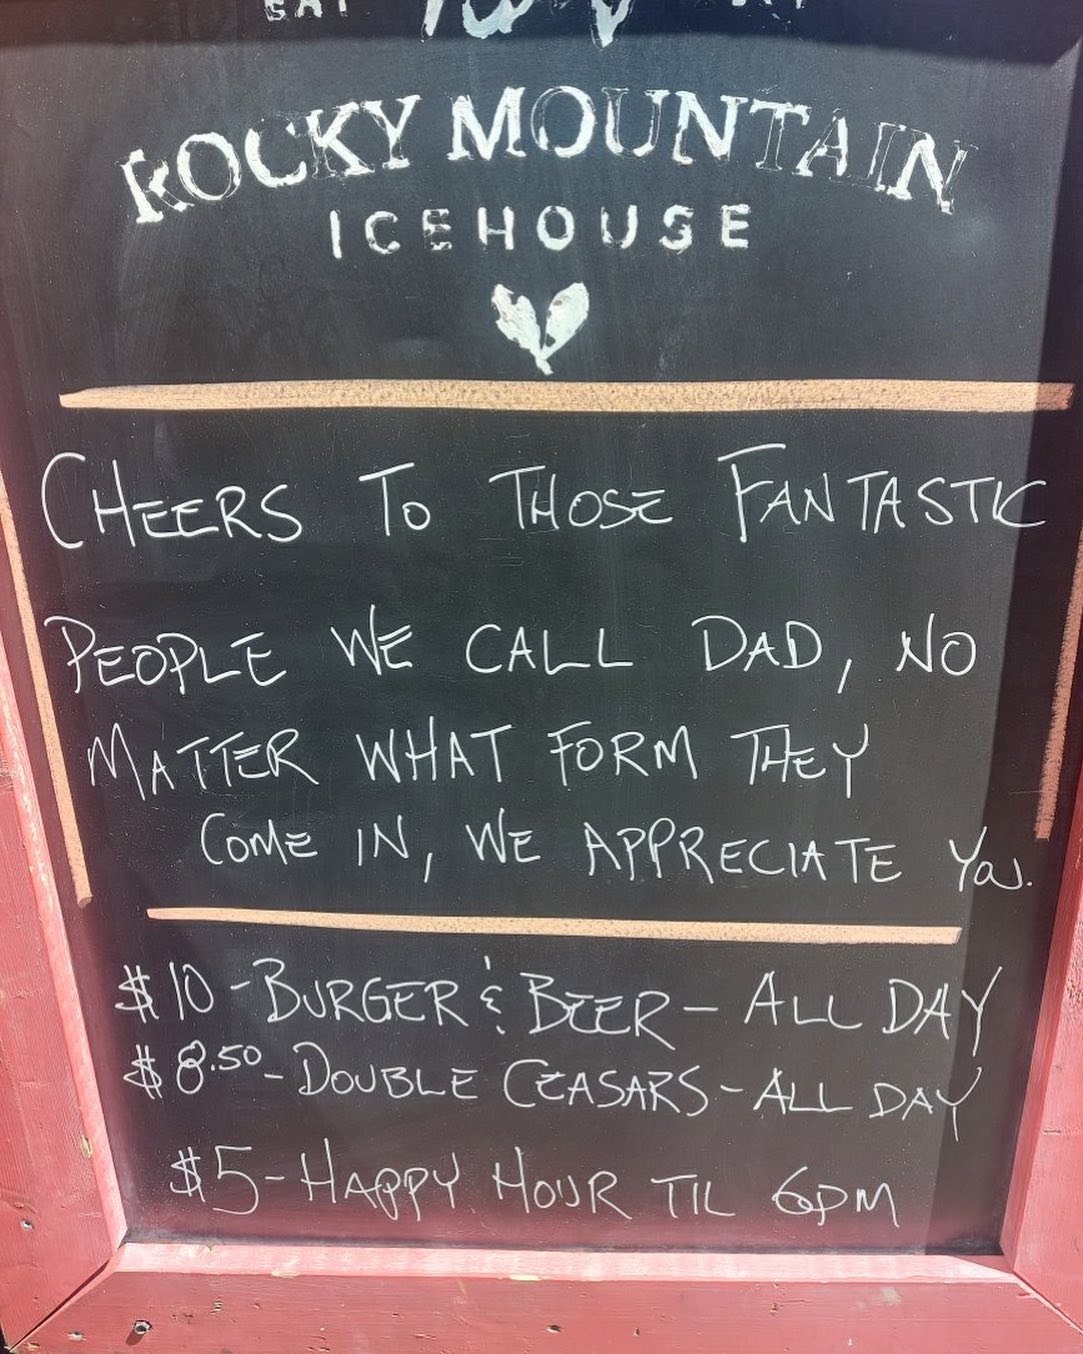 EAT
ROCKY MOUNTAIN
ICEHOUSE
CHEERS TO THOSE FANTASTIC
PEOPLE WE CALL DAD, NO
MATTER WHAT FORM THEY
COME IN, WE APPRECIATE YOU.
$10-BURGER & BEER- ALL DAY
$8.50-DOUBLE CEASARS-ALL DAY
$5-HAPPY HOUR TIL 6PM